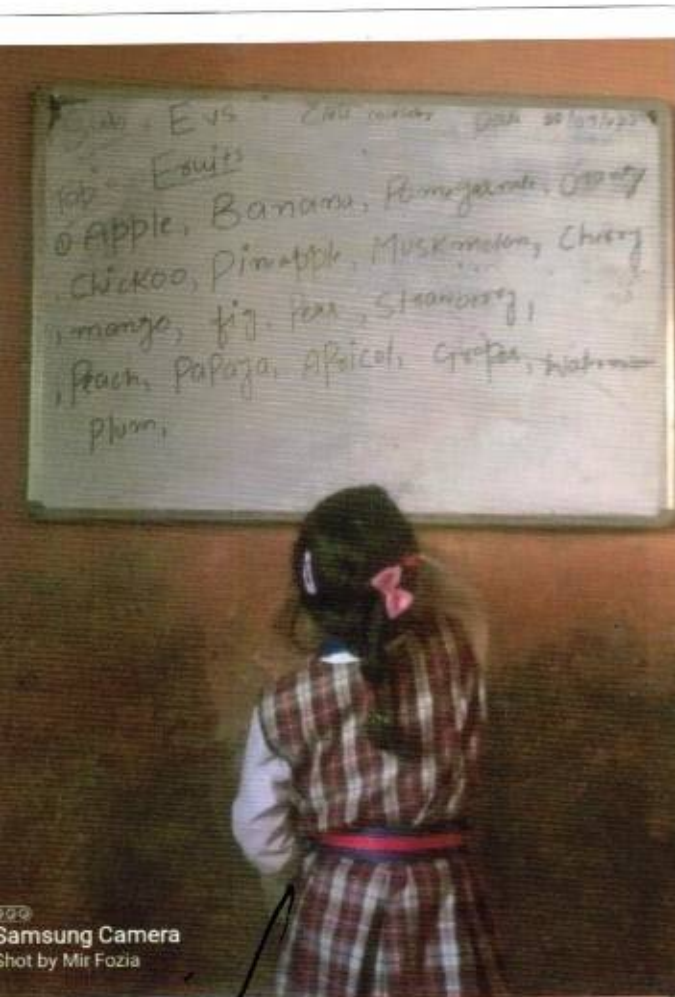 Sub. Evs Class Date
Top Fruits
Apple, Banana, Pomegranate, Orange
Chickoo, Pineapple, Muskmelon, Cherry
, mango, fig, Pear, Strawberry,
, Peach, Papaya, Apricot, Grapes,
Plum,
Samsung Camera
Shot by Mir Fozia